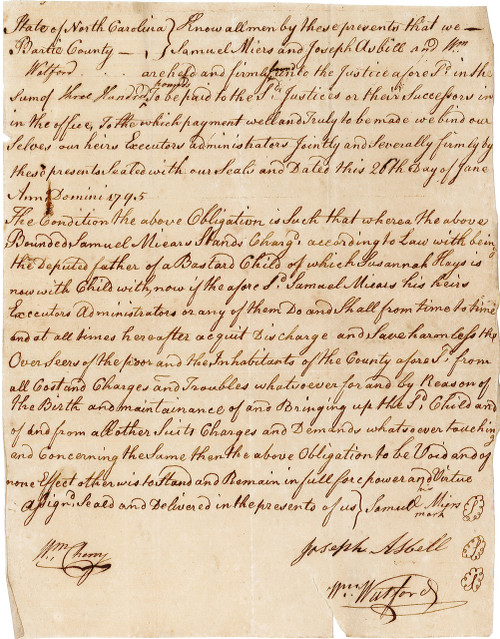 State of North Carolina } Know all men by these presents that we
Bartie County } Samuel Miers and Joseph Asbill and Wm
Watford are held and firmly bound unto the Justice afores.d in the
Sum of three Hundred pounds To be paid to the S.d Justices or their Successors in
in the office, To the which payment well and Truly to be made we bind our
Selves our heirs Executors administrators Jointly and Severally firmly by
these presents Sealed with our Seals and Dated this 26th Day of June
Ann Domini 1795
The Condition the above Obligation is Such that wherea the above
Bounded Samuel Miears Stands Charg.d according to Law with being
the Deputed father of a Bastard Child of which Susannah Hays is
now with Child with, now if the afore S.d Samuel Miears his heirs
Executors Administrators or any of them Do and Shall from time to time
and at all times hereafter acquit Discharge and Save harmless the
Over Seers of the poor and the Inhabitants of the County afores.d from
all Cost and Charges and Troubles whatsoever for and by Reason of
the Birth and maintainance of and Bringing up the S.d Child and
of and from all other Suits Charges and Demands whatsoever touching
and Concerning the Same then the above Obligation to be Void and of
none Effect otherwis to Stand and Remain in full forc power and Virtue
a sign.d Seald and Delivered in the presents of us } Samuel his Miers
mark
Wm. Cherry
Joseph Asbill
Wm. Watford